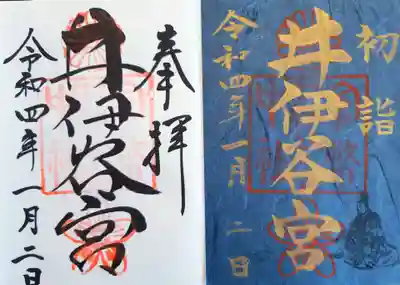 奉拝
井伊谷宮
令和四年一月二日
初詣
井伊谷宮
令和四年一月二日